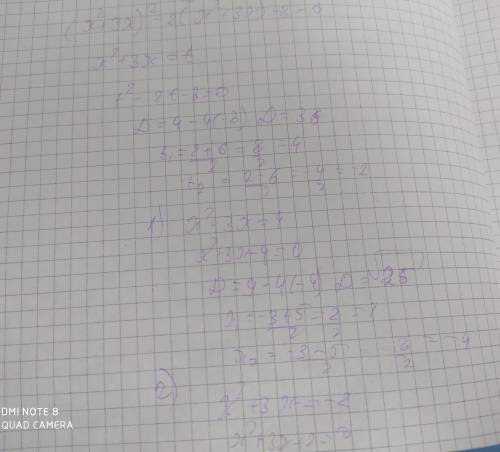 (x²+3x)²-2(x²+3x)-8=0
x²+3x=t
t²-2t-8=0
D=4-4(-8) D=36
t₁=2+6/2=8/2=4
t₂=2-6/2=-4/2=-2
1) x²+3x=4
x²+3x-4=0
D=9-4(-4) D=25
x=-3+5/2=2/2=1
x₂=-3-5/2=-8/2=-4
2) x²+3x=-2
REDMI NOTE 8
QUAD CAMERA